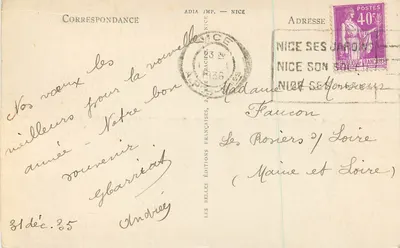 CORRESPONDANCE
ADIA IMP. — NICE
ADRESSE
POSTES
40c
NICE
NICE SES JARDINS
NICE SON SOLEIL
NICE SE
LES BELLES ÉDITIONS FRANÇAISES
Nos vœux les
meilleurs pour la nouvelle
année - Notre bon
souvenir
Andrée
31 déc. 35
Madame et Monsieur
Faucon
Les Rosiers s/ Loire
(Maine et Loire)